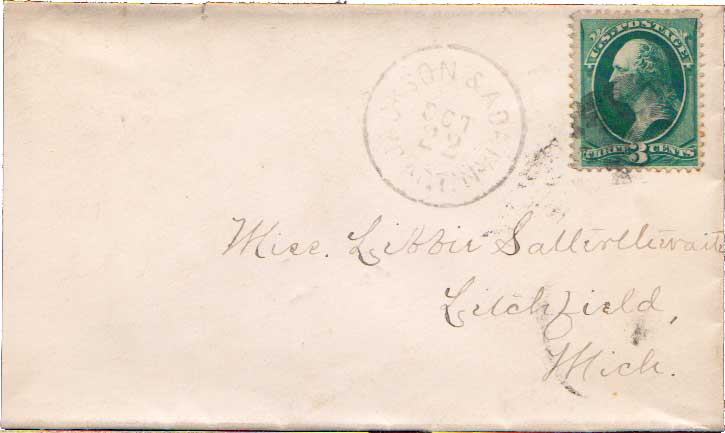 U.S. POSTAGE
THREE 3 CENTS
JACKSON & ADRIAN
OCT
22
Miss. Libbie Satterthwaite
Litchfield,
Mich.